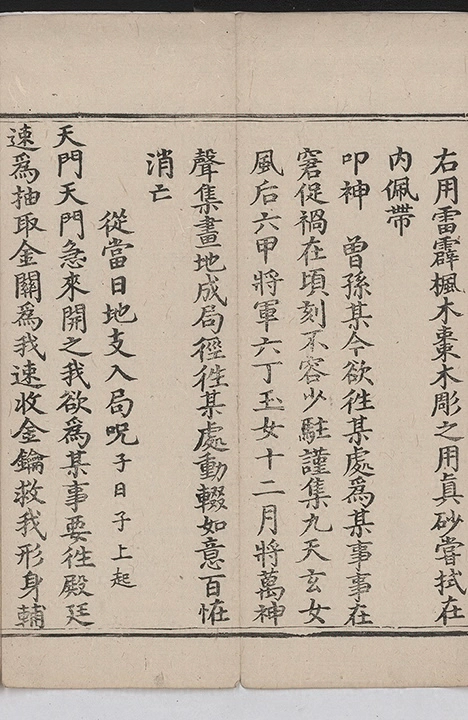 右用雷霹楓木棗木彫之用真砂當拭在
內佩帶
叩神　曾孫某今欲徃某處爲某事事在
窘促禍在頃刻不容少駐謹集九天玄女
風后六甲將軍六丁玉女十二月將萬神
聲集畫地成局徑徃某處動輟如意百恠
消亡
從當日地支入局呪子日子上起
天門天門急來開之我欲爲某事要徃殿廷
速爲抽取金關爲我速收金鑰救我形身輔